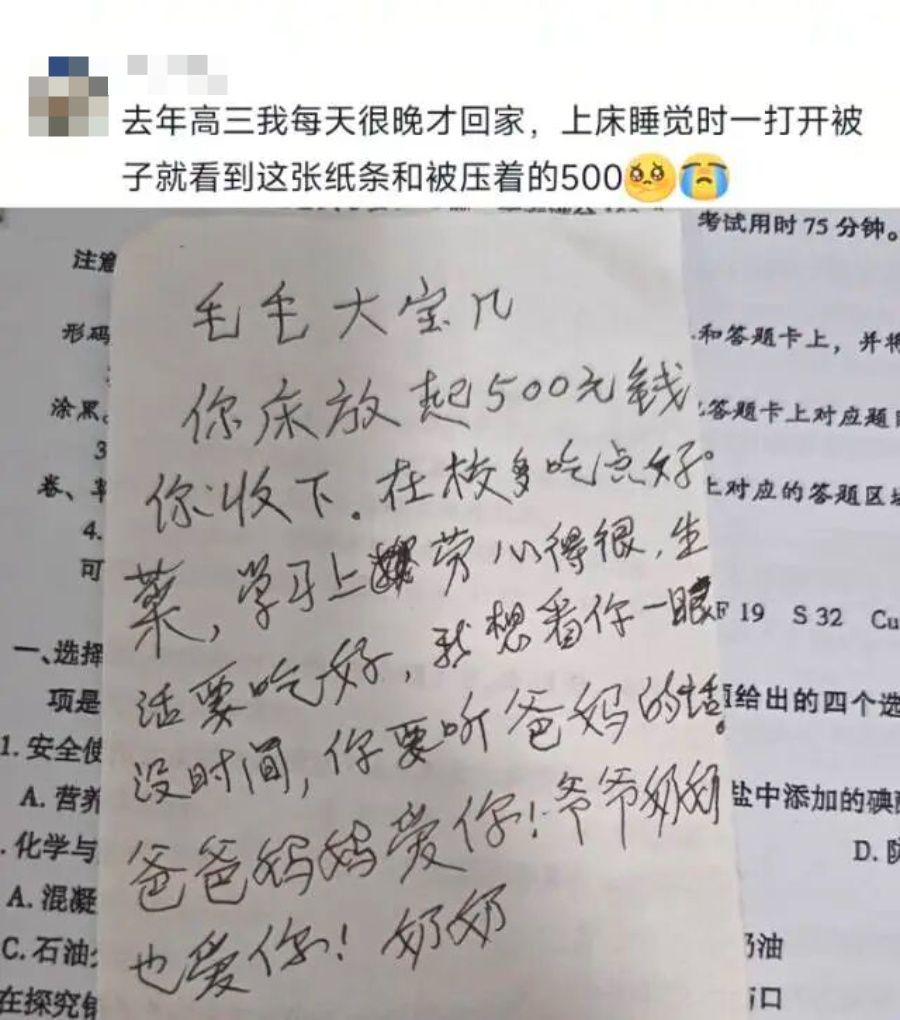 去年高三我每天很晚才回家，上床睡觉时一打开被
子就看到这张纸条和被压着的500🥺😭
考试用时75分钟。
注意
毛毛大宝几
形码
和答题卡上，并将
你床放起500元钱
涂黑。
答题卡上对应题目
3
你收下。在校多吃点好。
卷、
上对应的答题区域
4.
菜，学习上劳心得很，生
可
F 19 S 32 Cu
一、选择
活要吃好，我想看你一眼
项是
给出的四个选
没时间，你要听爸妈的话。
1. 安全使
A. 营养
盐中添加的碘酸
爸爸妈妈爱你！爷爷奶奶
化学与
D. 防
A. 混凝
也爱你！奶奶
C. 石油
奶油
在探究铁